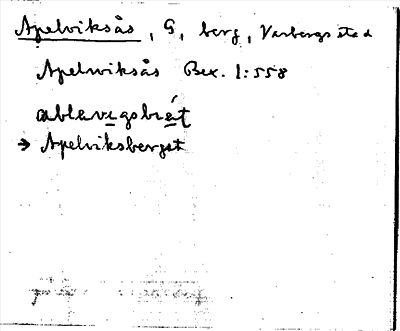 Apelviksås, G, berg, Varbergs stad
Apelwiksås Bex. 1:558
ablavigsbiét
→ Apelviksberget